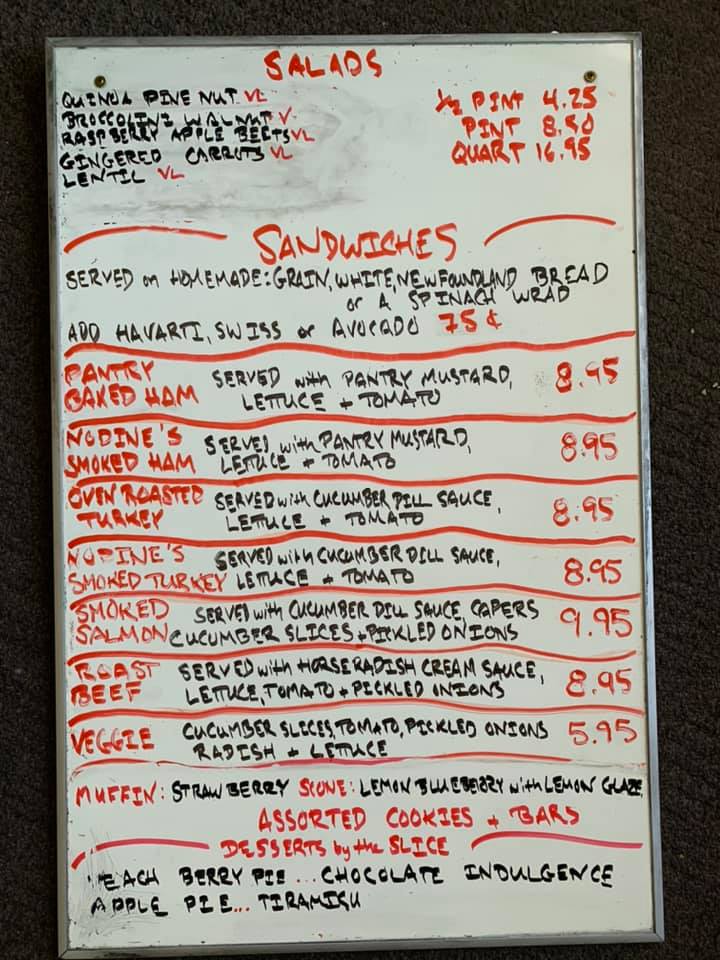 SALADS
QUINOA PINE NUT VL
BROCCOLINI WALNUT V
RASPBERRY APPLE BEETS VL
GINGERED CARROTS VL
LENTIL VL
1/2 PINT 4.25
PINT 8.50
QUART 16.95
SANDWICHES
SERVED on HOMEMADE: GRAIN, WHITE, NEWFOUNDLAND BREAD
or A SPINACH WRAP
ADD HAVARTI, SWISS or AVOCADO 75¢
PANTRY BAKED HAM SERVED with PANTRY MUSTARD, 8.95
LETTUCE + TOMATO
NODINE'S SMOKED HAM SERVED with PANTRY MUSTARD, 8.95
LETTUCE + TOMATO
OVEN ROASTED TURKEY SERVED with CUCUMBER DILL SAUCE, 8.95
LETTUCE + TOMATO
NODINE'S SMOKED TURKEY SERVED with CUCUMBER DILL SAUCE, 8.95
LETTUCE + TOMATO
SMOKED SALMON SERVED with CUCUMBER DILL SAUCE, CAPERS 9.95
CUCUMBER SLICES + PICKLED ONIONS
ROAST BEEF SERVED with HORSERADISH CREAM SAUCE, 8.95
LETTUCE, TOMATO + PICKLED ONIONS
VEGGIE CUCUMBER SLICES, TOMATO, PICKLED ONIONS 5.95
RADISH + LETTUCE
MUFFIN: STRAWBERRY SCONE: LEMON BLUEBERRY with LEMON GLAZE
ASSORTED COOKIES + BARS
DESSERTS by the SLICE
PEACH BERRY PIE ... CHOCOLATE INDULGENCE
APPLE PIE... TIRAMISU